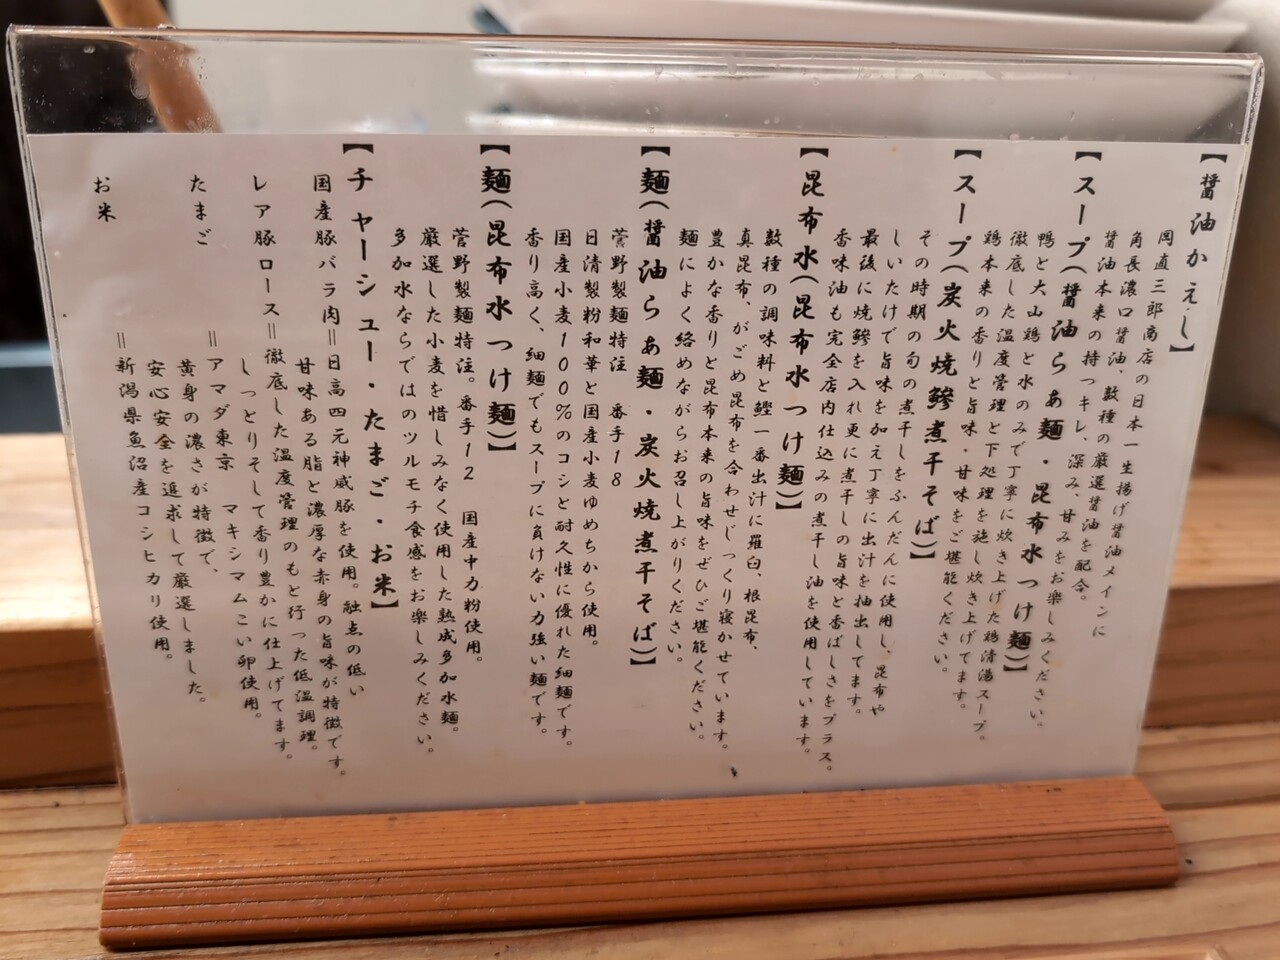 【醤油かえし】
岡直三郎商店の日本一生揚げ醤油メインに
角長濃口醤油、数種の厳選醤油を配合。
醤油本来の持つキレ、深み、甘みをお楽しみください。
【スープ(醤油らぁ麺・昆布水つけ麺)】
鴨と大山鶏と水のみで丁寧に炊き上げた鶏清湯スープ。
徹底した温度管理と下処理を施し炊き上げてます。
鶏本来の香りと旨味・甘味をご堪能ください。
【スープ(炭火焼鯵煮干そば)】
その時期の旬の煮干しをふんだんに使用し、昆布や
しいたけで旨味を加え丁寧に出汁を抽出してます。
最後に焼鯵を入れ更に煮干しの旨味と香ばしさをプラス。
香味油も完全店内仕込みの煮干し油を使用しています。
【昆布水(昆布水つけ麺)】
数種の調味料と鰹一番出汁に羅臼、根昆布、
真昆布、がごめ昆布を合わせじっくり寝かせています。
豊かな香りと昆布本来の旨味をぜひご堪能ください。
麺によく絡めながらお召し上がりください。
【麺(醤油らぁ麺・炭火焼煮干そば)】
菅野製麺特注 番手18
日清製粉和華と国産小麦ゆめちから使用。
国産小麦100％のコシと耐久性に優れた細麺です。
香り高く、細麺でもスープに負けない力強い麺です。
【麺(昆布水つけ麺)】
菅野製麺特注。番手12 国産中力粉使用。
厳選した小麦を惜しみなく使用した熟成多加水麺。
多加水ならではのツルモチ食感をお楽しみください。
【チャーシュー・たまご・お米】
国産豚バラ肉＝日高四元神威豚を使用。融点の低い
甘味ある脂と濃厚な赤身の旨味が特徴です。
レア豚ロース＝徹底した温度管理のもと行った低温調理。
しっとりそして香り豊かに仕上げてます。
たまご ＝アマダ東京 マキシマムこい卵使用。
黄身の濃さが特徴で、
安心安全を追求して厳選しました。
お米 ＝新潟県魚沼産コシヒカリ使用。